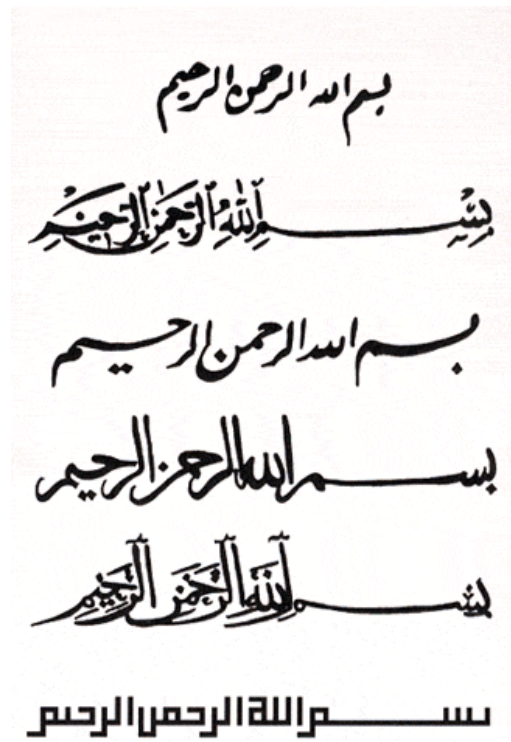 بسم الله الرحمن الرحيم
بِسْــــمِ اللهِ الرَّحْمٰنِ الرَّحِيْمِ
بسم الله الرحمن الرحيم
بســـــم الله الرحمن الرحيم
بِســـــمِ اللهِ الرَّحْمٰنِ الرَّحِيمِ
بســـــم الله الرحمن الرحيم